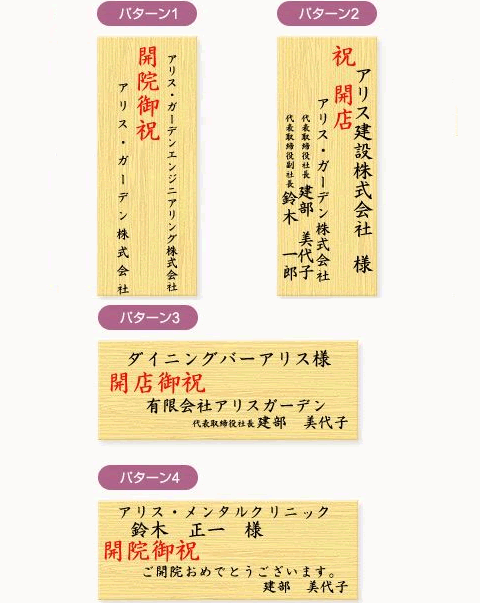 パターン1
アリス・ガーデンエンジニアリング株式会社
開院御祝
アリス・ガーデン株式会社
パターン2
祝 開店
アリス建設株式会社 様
アリス・ガーデン株式会社
代表取締役社長 建部 美代子
代表取締役副社長 鈴木 一郎
パターン3
ダイニングバーアリス様
開店御祝
有限会社アリスガーデン
代表取締役社長 建部 美代子
パターン4
アリス・メンタルクリニック
鈴木 正一 様
開院御祝
ご開院おめでとうございます。
建部 美代子